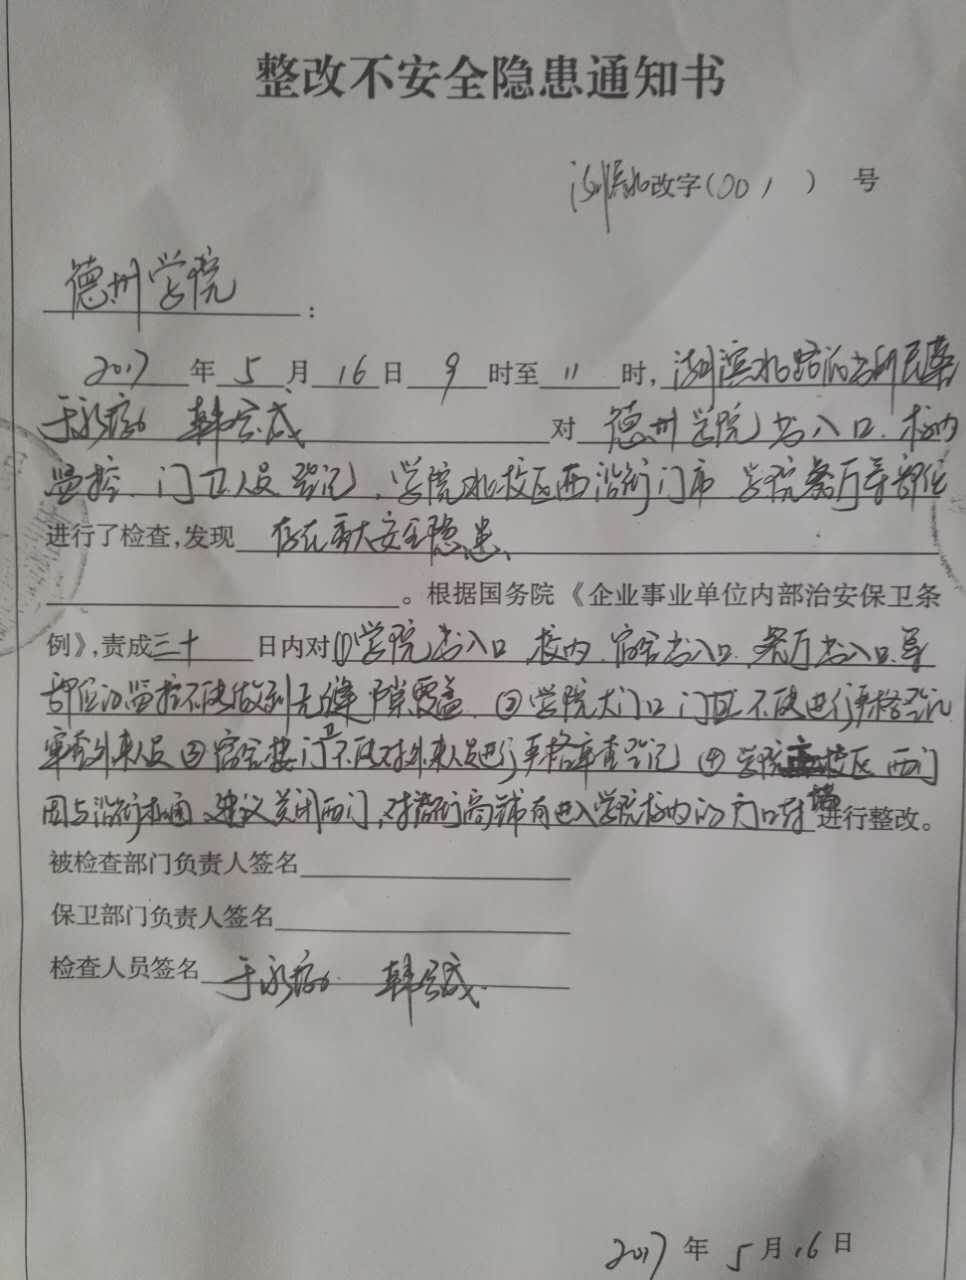 整改不安全隐患通知书
改字(001 ) 号
德州学院:
2017年5月16日9时至11时, 滨北路派出所民警
于永 韩 对 德州学院出入口、校内
监控、门卫人员登记, 学院北校区西沿街门市 学院餐厅等部位
进行了检查,发现 存在重大安全隐患、
。根据国务院《企业事业单位内部治安保卫条
例》,责成三十日内对①学院出入口、校内、宿舍出入口、餐厅出入口等
部位的监控不能做到无缝隙覆盖、②学院大门口门卫不能进行严格登记
审查外来人员③宿舍楼门卫不能对外来人员进行严格审查登记④学院 校区西门
因与沿街相通、建议关闭西门,对沿街商铺有进入学院校内的门口封堵进行整改。
被检查部门负责人签名
保卫部门负责人签名
检查人员签名 于永 韩
2017年5月16日